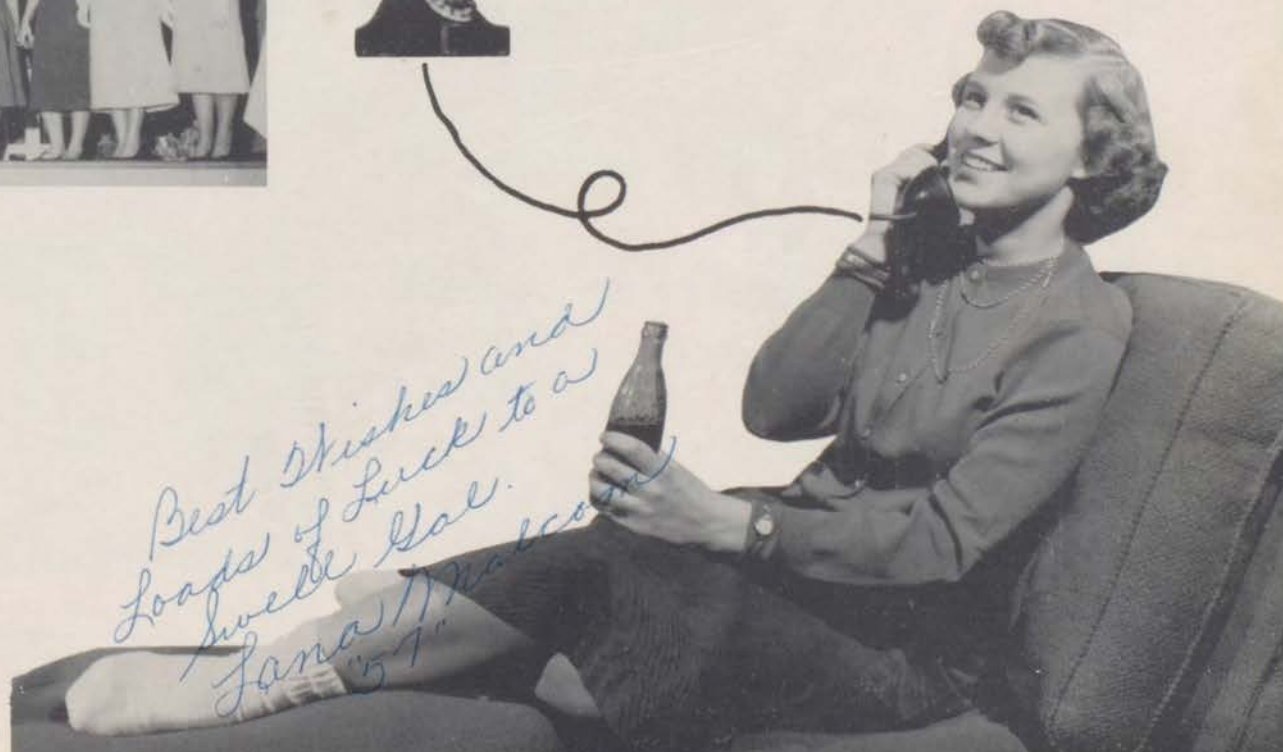 Best Wishes and
Loads of Luck to a
Swell Gal.
Lana Malcom
"57"